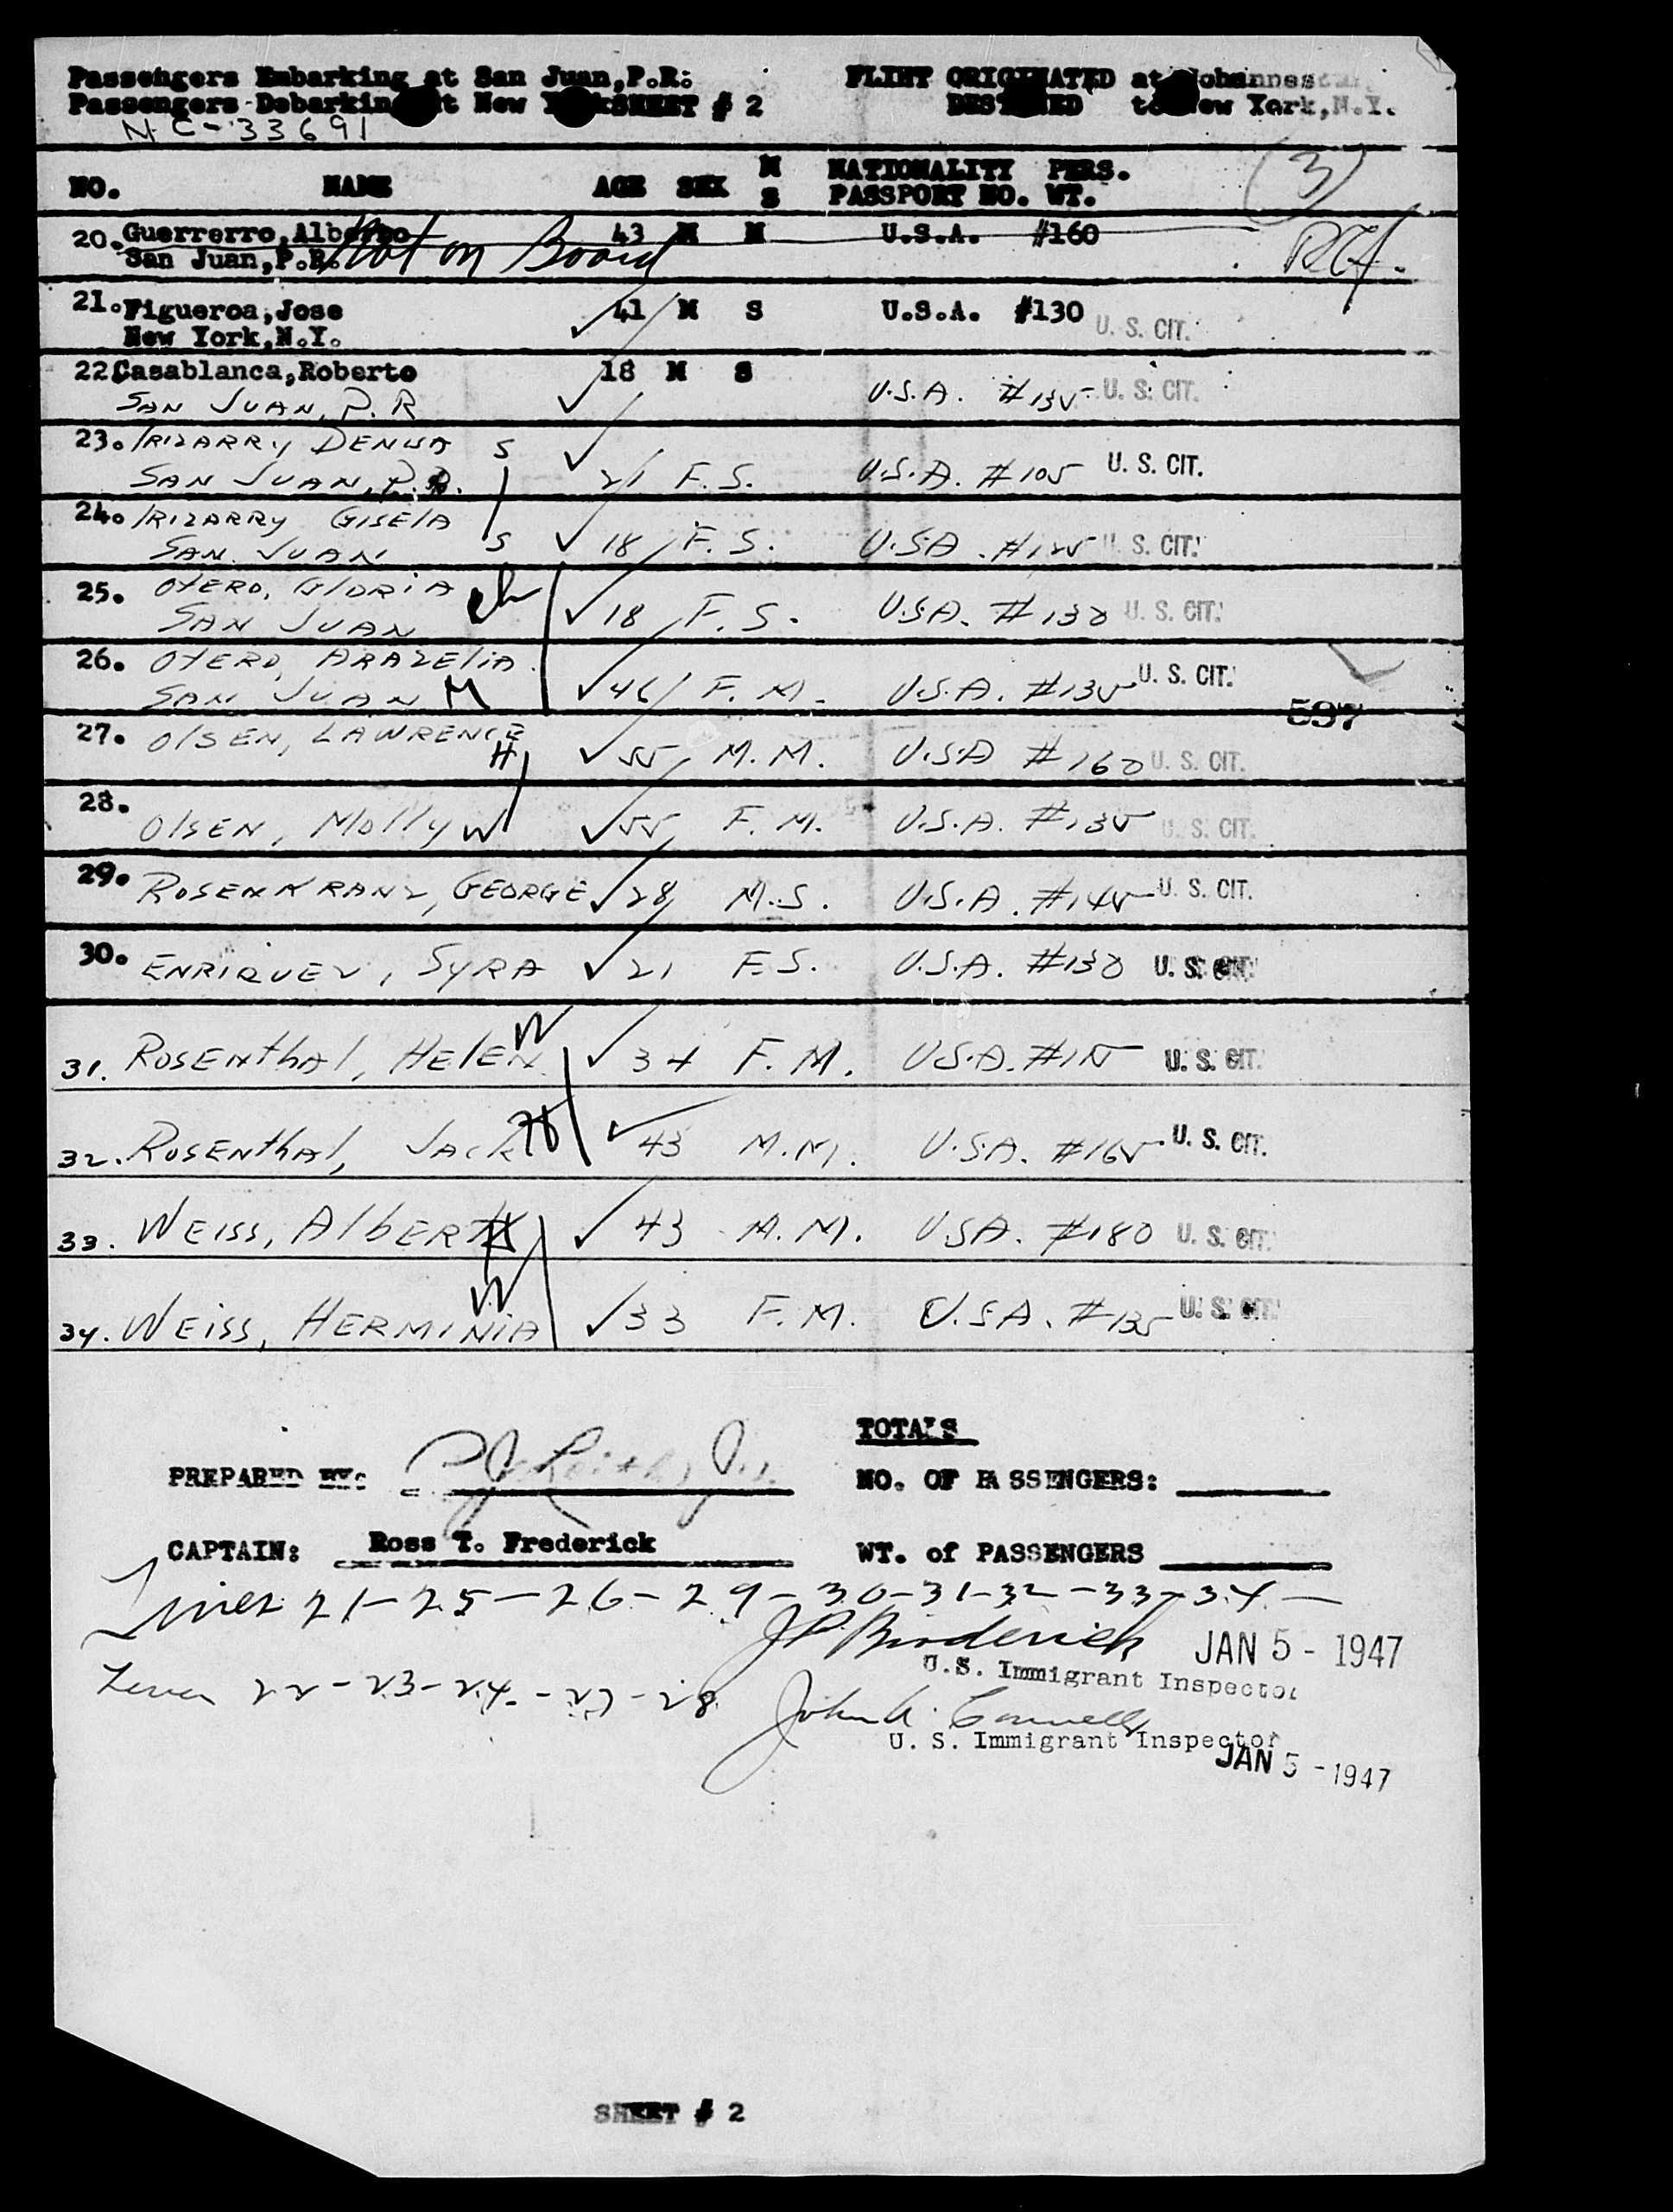 Passengers Embarking at San Juan,P.R: FLIHT ORIGINATED at Johannes
Passengers Debarking at New York SHEET # 2 DESTINED to New York,N.Y.
NC-33691
(3)
NO. NAME AGE SEX M S NATIONALITY PERS.
PASSPORT NO. WT.
20. Guerrerro,Alberto 43 M M U.S.A. #160
San Juan,P.R. Not on Board
21. Figueroa,Jose 41 M S U.S.A. #130 U. S. CIT.
New York,N.Y.
22 Casablanca,Roberto 18 M S
SAN JUAN, P. R U.S.A. #135 U. S. CIT.
23. IRIZARRY S
SAN JUAN, P.R. 21 F. S. U.S.A. #105 U. S. CIT.
24. IRIZARRY GISELA
SAN JUAN S 18 F. S. U.S.A. #125 U. S. CIT.
25. OTERO, GLORIA ch
SAN JUAN 18 F. S. U.S.A. #130 U. S. CIT.
26. OTERO,
SAN JUAN M 46 F. M. U.S.A. #135 U. S. CIT.
597
27. OLSEN, LAWRENCE
H 55 M. M. U.S.A #160 U. S. CIT.
28.
OlSEN, Molly W 55 F. M. U.S.A. #135 U. S. CIT.
29. ROSENKRANZ, GEORGE 28 M. S. U.S.A. #145 U. S. CIT.
30. ENRIQUEZ, SYRA 21 F. S. U.S.A. #130 U. S. CIT.
31. ROSENthAl, HElEN W 34 F. M. U.S.A. #115 U. S. CIT.
32. ROSENthAl, JACK H 43 M. M. U.S.A. #165 U. S. CIT.
33. WEISS, AlbERT H 43 M. M. U.S.A. #180 U. S. CIT.
34. WEISS, HERMINIA W 33 F. M. U.S.A. #135 U. S. CIT.
TOTALS
PREPARED BY: NO. OF PASSENGERS:
CAPTAIN: Ross T. Frederick WT. of PASSENGERS
Lines 21-25-26-29-30-31-32-33-34-
J P Broderick JAN 5 - 1947
U.S. Immigrant Inspector
Lines 22-23-24-27-28 John A. Connelly
U. S. Immigrant Inspector
JAN 5 - 1947
SHEET # 2